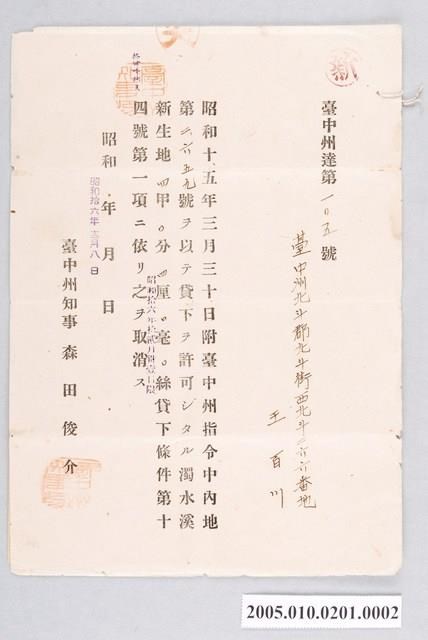 新
臺中州達第一〇五號
臺中州北斗郡北斗街西北斗二六六番地
王百川
昭和十五年三月三十日附臺中州指令中內地
第二六五九號ヲ以テ貸下ヲ許可シタル濁水溪
新生地四甲〇分四厘〇毫〇絲貸下條件第十
四號第一項ニ依リ之ヲ取消ス
昭和 年 月 日
昭和拾六年三月八日
臺中州知事 森田俊介
2005.010.0201.0002